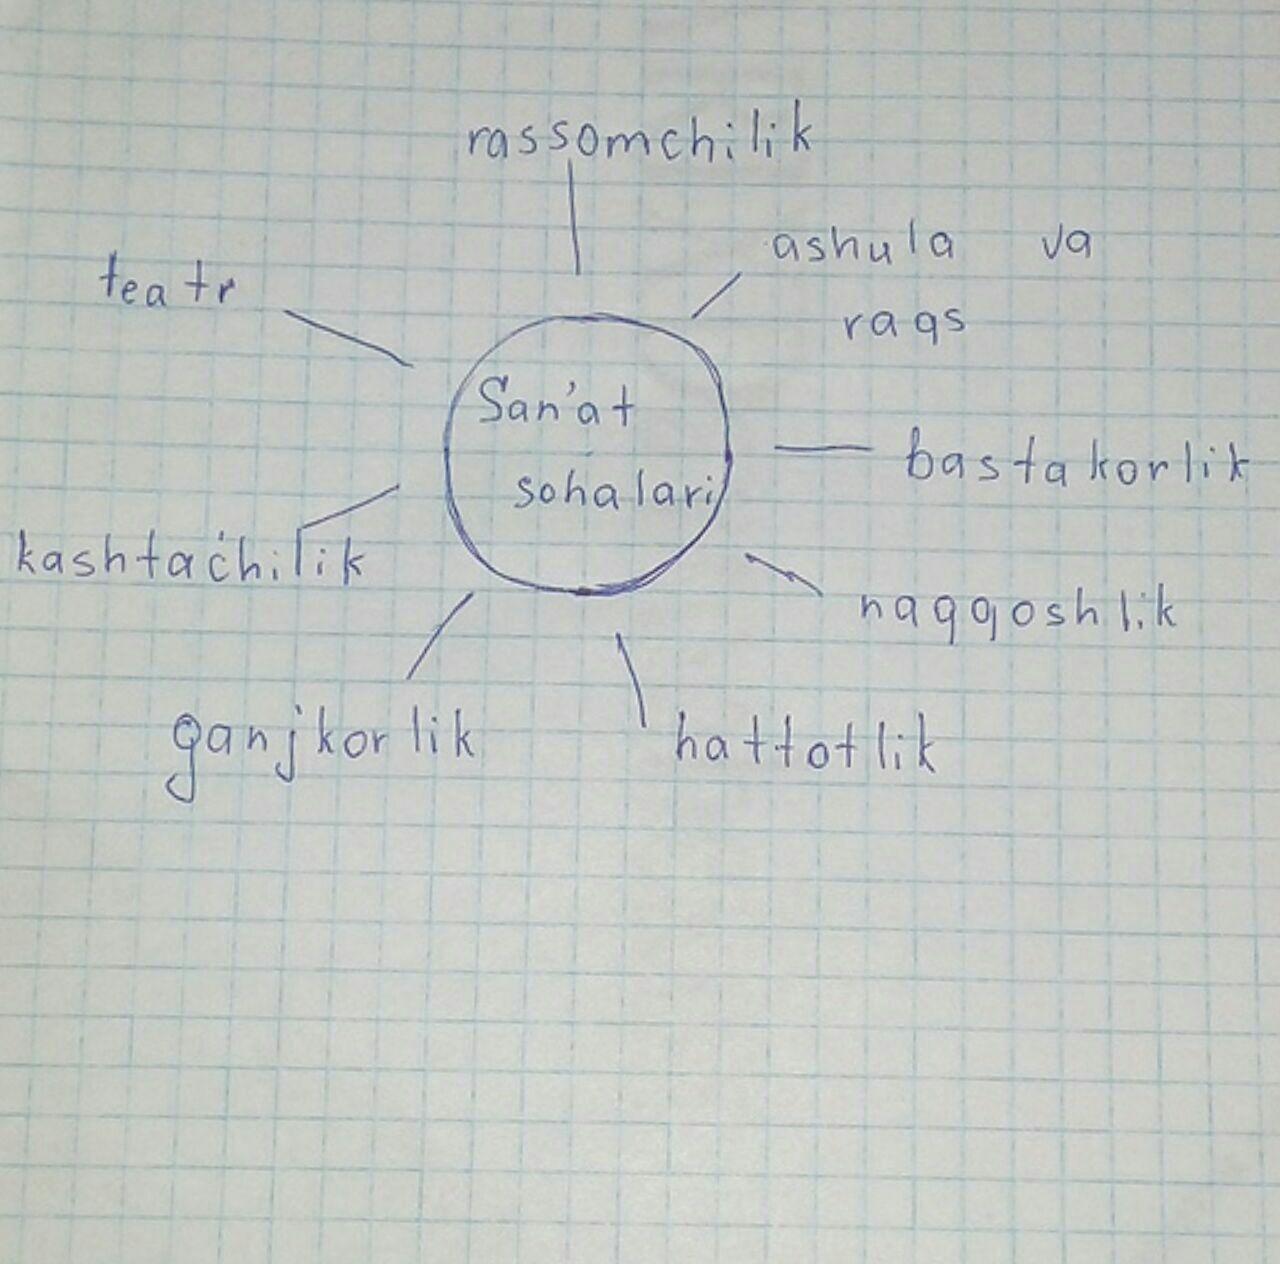 rassomchilik
ashula va
raqs
teatr
San'at
sohalari
bastakorlik
kashtachilik
naqqoshlik
ganjkorlik
hattotlik